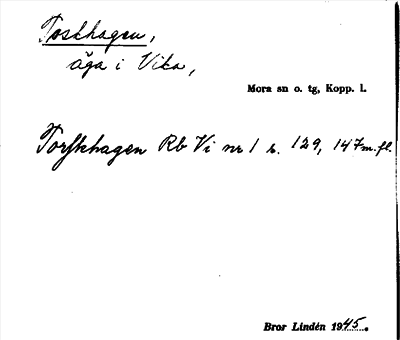 Toskhagen,
äga i Vika,
Mora sn o. tg, Kopp. l.
Torskhagen Rb Vi nr 1 s. 129, 147 m. fl.
Bror Lindén 1945.